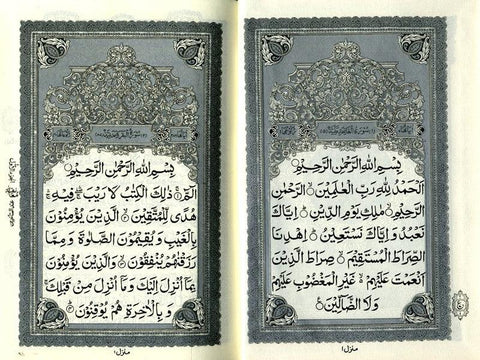 بِسْمِ اللّٰهِ الرَّحْمٰنِ الرَّحِيْمِ
اَلْحَمْدُ لِلّٰهِ رَبِّ الْعٰلَمِيْنَ الرَّحْمٰنِ
الرَّحِيْمِ مٰلِكِ يَوْمِ الدِّيْنِ اِيَّاكَ
نَعْبُدُ وَاِيَّاكَ نَسْتَعِيْنُ اِهْدِنَا
الصِّرَاطَ الْمُسْتَقِيْمَ صِرَاطَ الَّذِيْنَ
اَنْعَمْتَ عَلَيْهِمْ غَيْرِ الْمَغْضُوْبِ عَلَيْهِمْ
وَلَا الضَّآلِّيْنَ
منزل ١
بِسْمِ اللّٰهِ الرَّحْمٰنِ الرَّحِيْمِ
الٓمّٓ ذٰلِكَ الْكِتٰبُ لَا رَيْبَ فِيْهِ
هُدًى لِّلْمُتَّقِيْنَ الَّذِيْنَ يُؤْمِنُوْنَ
بِالْغَيْبِ وَيُقِيْمُوْنَ الصَّلٰوةَ وَمِمَّا
رَزَقْنٰهُمْ يُنْفِقُوْنَ وَالَّذِيْنَ يُؤْمِنُوْنَ
بِمَآ اُنْزِلَ اِلَيْكَ وَمَآ اُنْزِلَ مِنْ قَبْلِكَ
وَبِالْاٰخِرَةِ هُمْ يُوْقِنُوْنَ
منزل ١